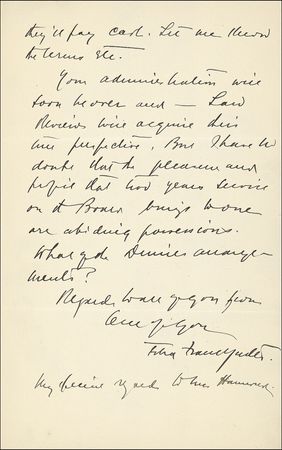 they'll pay cash. Let me know
the terms etc.
Your administration will
soon be over and — Law
Reviews will acquire
new perspective. But I have no
doubt that the pleasure and
profit that two years service
on the Board brings to one
are abiding possessions.
What of the arrange-
ments?
Regards to all of you from
one of you
My regards to Mrs